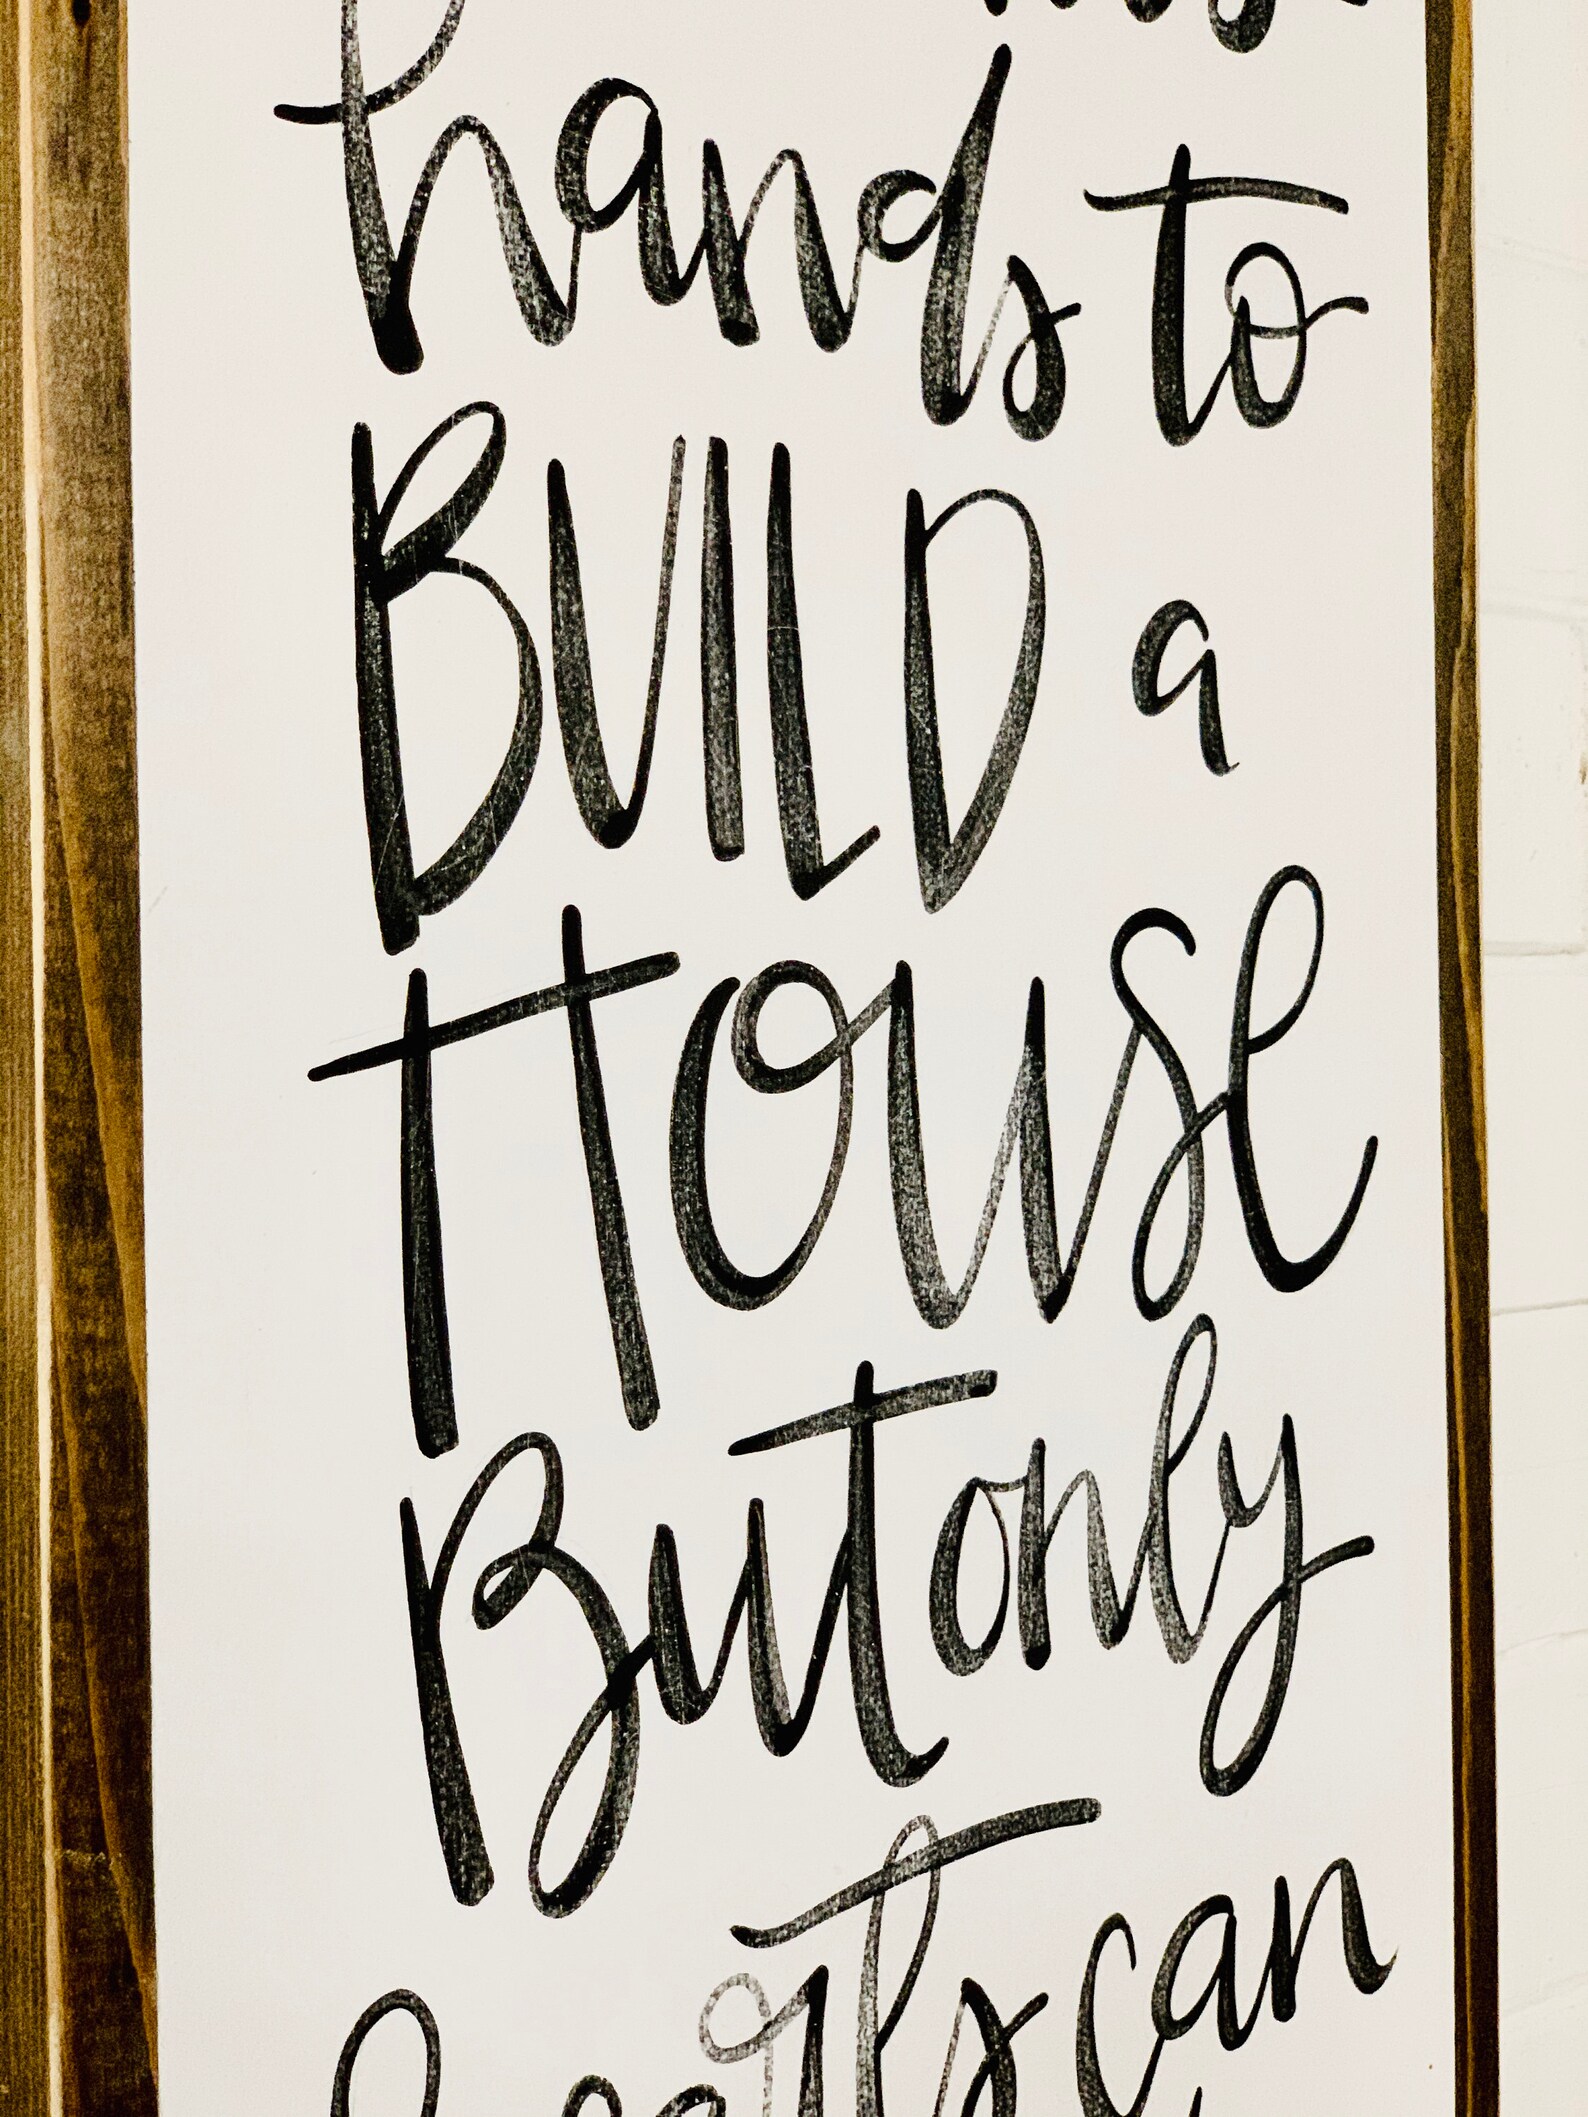 hands to
BUILD a
House
But only
hearts can